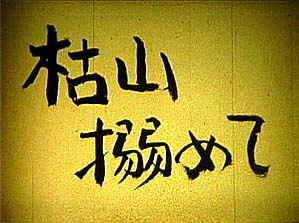 枯山
搦めて